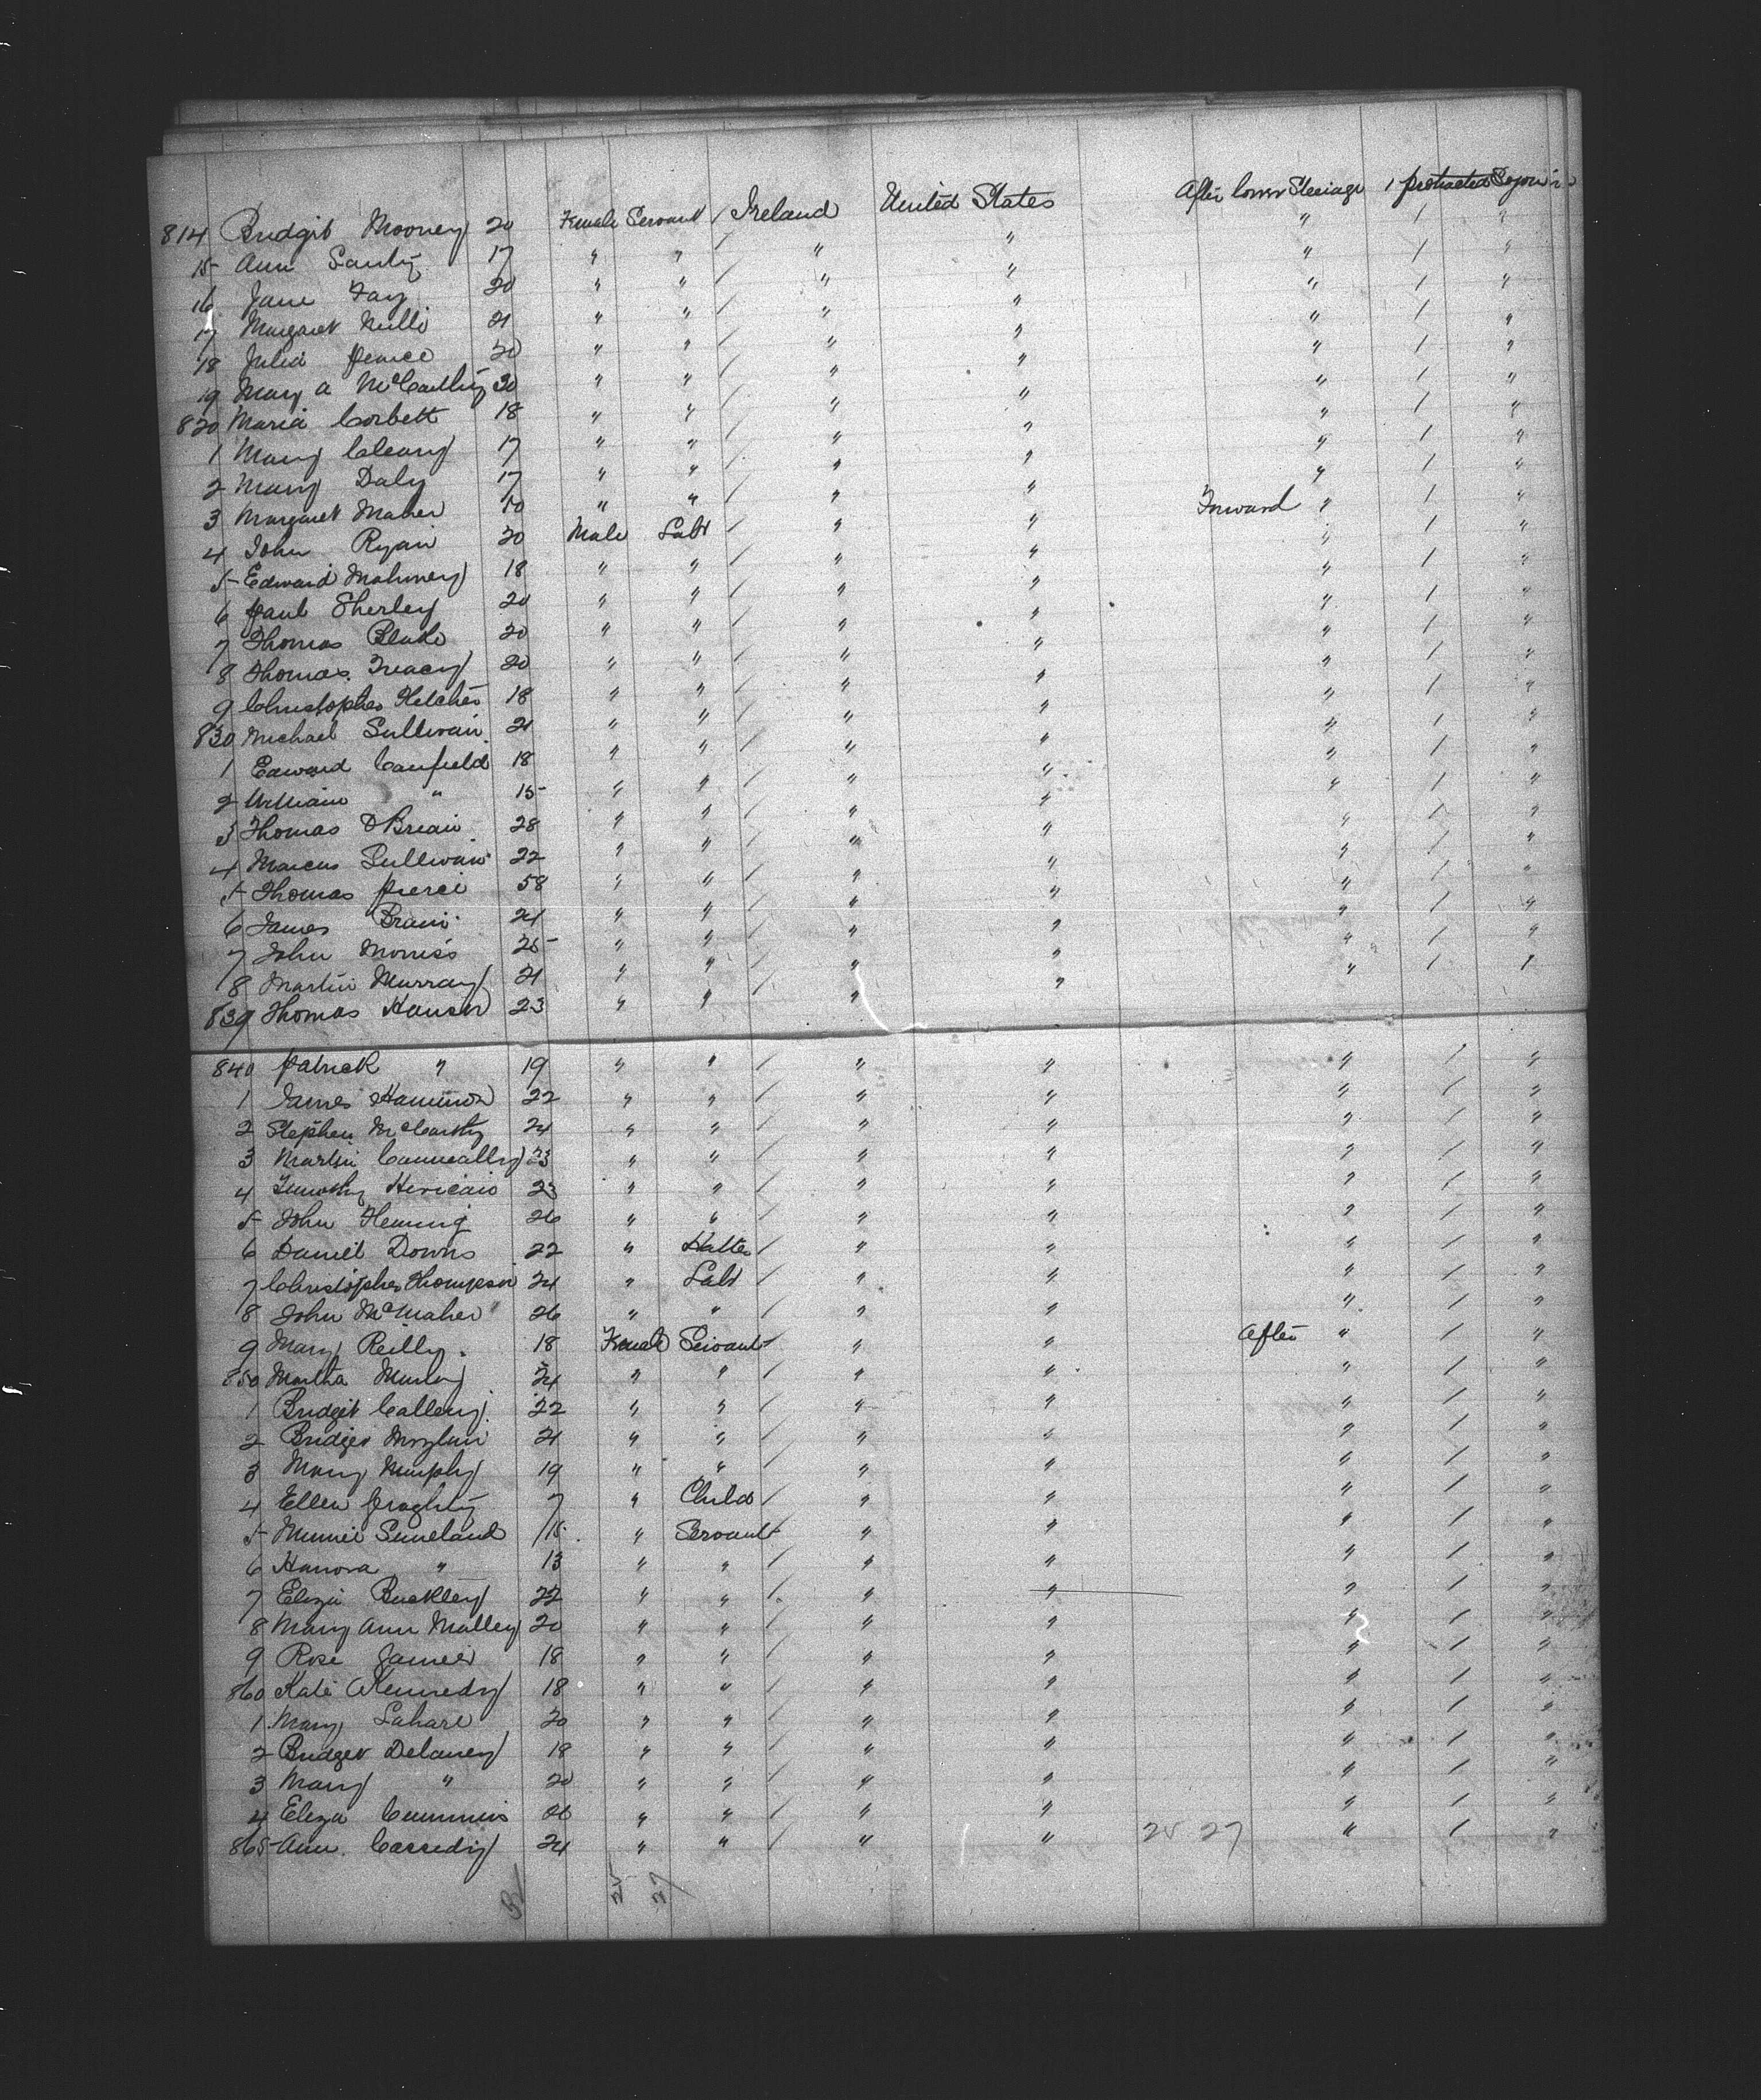 814 Bridgit Mooney 20 Female Servant / Ireland United States After lower Steerage / protracted Sojourn
15 Ann 17 " " / " " " / "
16 Jane Fay 20 " " / " " " / "
17 Margaret 21 " " / " " " / "
18 Julia Pearce 20 " " / " " " / "
19 Mary A McCarthy 30 " " / " " " / "
820 Maria Corbett 18 " " / " " " / "
1 Mary Cleary 17 " " / " " " / "
2 Mary Daly 17 " " / " " " / "
3 Margaret Maher " " / " " " / "
4 John Ryan 20 Male Labr / " " Forward " / "
5 Edward Mahoney 18 " " / " " " / "
6 Paul Sherley 20 " " / " " " / "
7 Thomas Blake 20 " " / " " " / "
8 Thomas Treacy 20 " " / " " " / "
9 Christopher Kelcher 18 " " / " " " / "
830 Michael Sullivan 21 " " / " " " / "
1 Edward Canfield 18 " " / " " " / "
2 William " 15 " " / " " " / "
3 Thomas O'Brien 28 " " / " " " / "
4 Marcus Sullivan 22 " " / " " " / "
5 Thomas Pierce 58 " " / " " " / "
6 James 24 " " / " " " / "
7 John Morriss 25 " " / " " " / "
8 Martin Murray 21 " " / " " " / "
839 Thomas 23 " " / " " " / "
840 Patrick " 19 " " / " " " / "
1 James 22 " " / " " " / "
2 Stephen McCarthy 24 " " / " " " / "
3 Martin Conneally 23 " " / " " " / "
4 Timothy 23 " " / " " " / "
5 John Fleming 26 " " / " " " / "
6 Daniel Downs 22 " Hatter / " " " / "
7 Christopher Thompson 24 " Labr / " " " / "
8 John McMaher 26 " " / " " " / "
9 Mary Reilly 18 Female Servant / " " After " / "
850 Martha 24 " " / " " " / "
1 Bridget Callery 22 " " / " " " / "
2 Bridget 21 " " / " " " / "
3 Mary Murphy 19 " " / " " " / "
4 Ellen Geoghty 7 " Child / " " " / "
5 Minnie 15 " Servant / " " " / "
6 Hanora " 13 " " / " " " / "
7 Eliza Buckley 22 " " / " " " / "
8 Mary Ann Malley 20 " " / " " " / "
9 Rose 18 " " / " " " / "
860 Kate Kennedy 18 " " / " " " / "
1 Mary 20 " " / " " " / "
2 Bridget Delaney 18 " " / " " " / "
3 Mary " 20 " " / " " " / "
4 Eliza Cummins 26 " " / " " " / "
865 Ann Cassedy 24 " " / " " 25 27 " / "
25 27